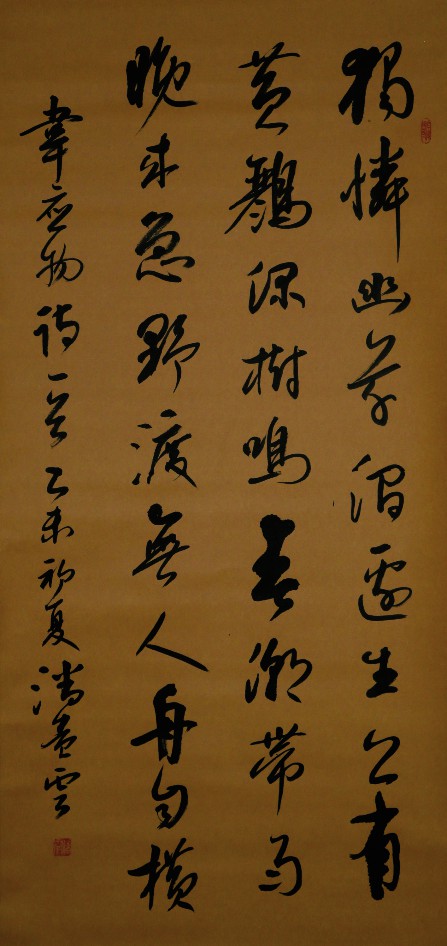 獨憐幽草澗邊生上有
黃鸝深樹鳴春潮帶雨
晚來急野渡無人舟自橫
韋应物詩一首乙未初夏潘雲